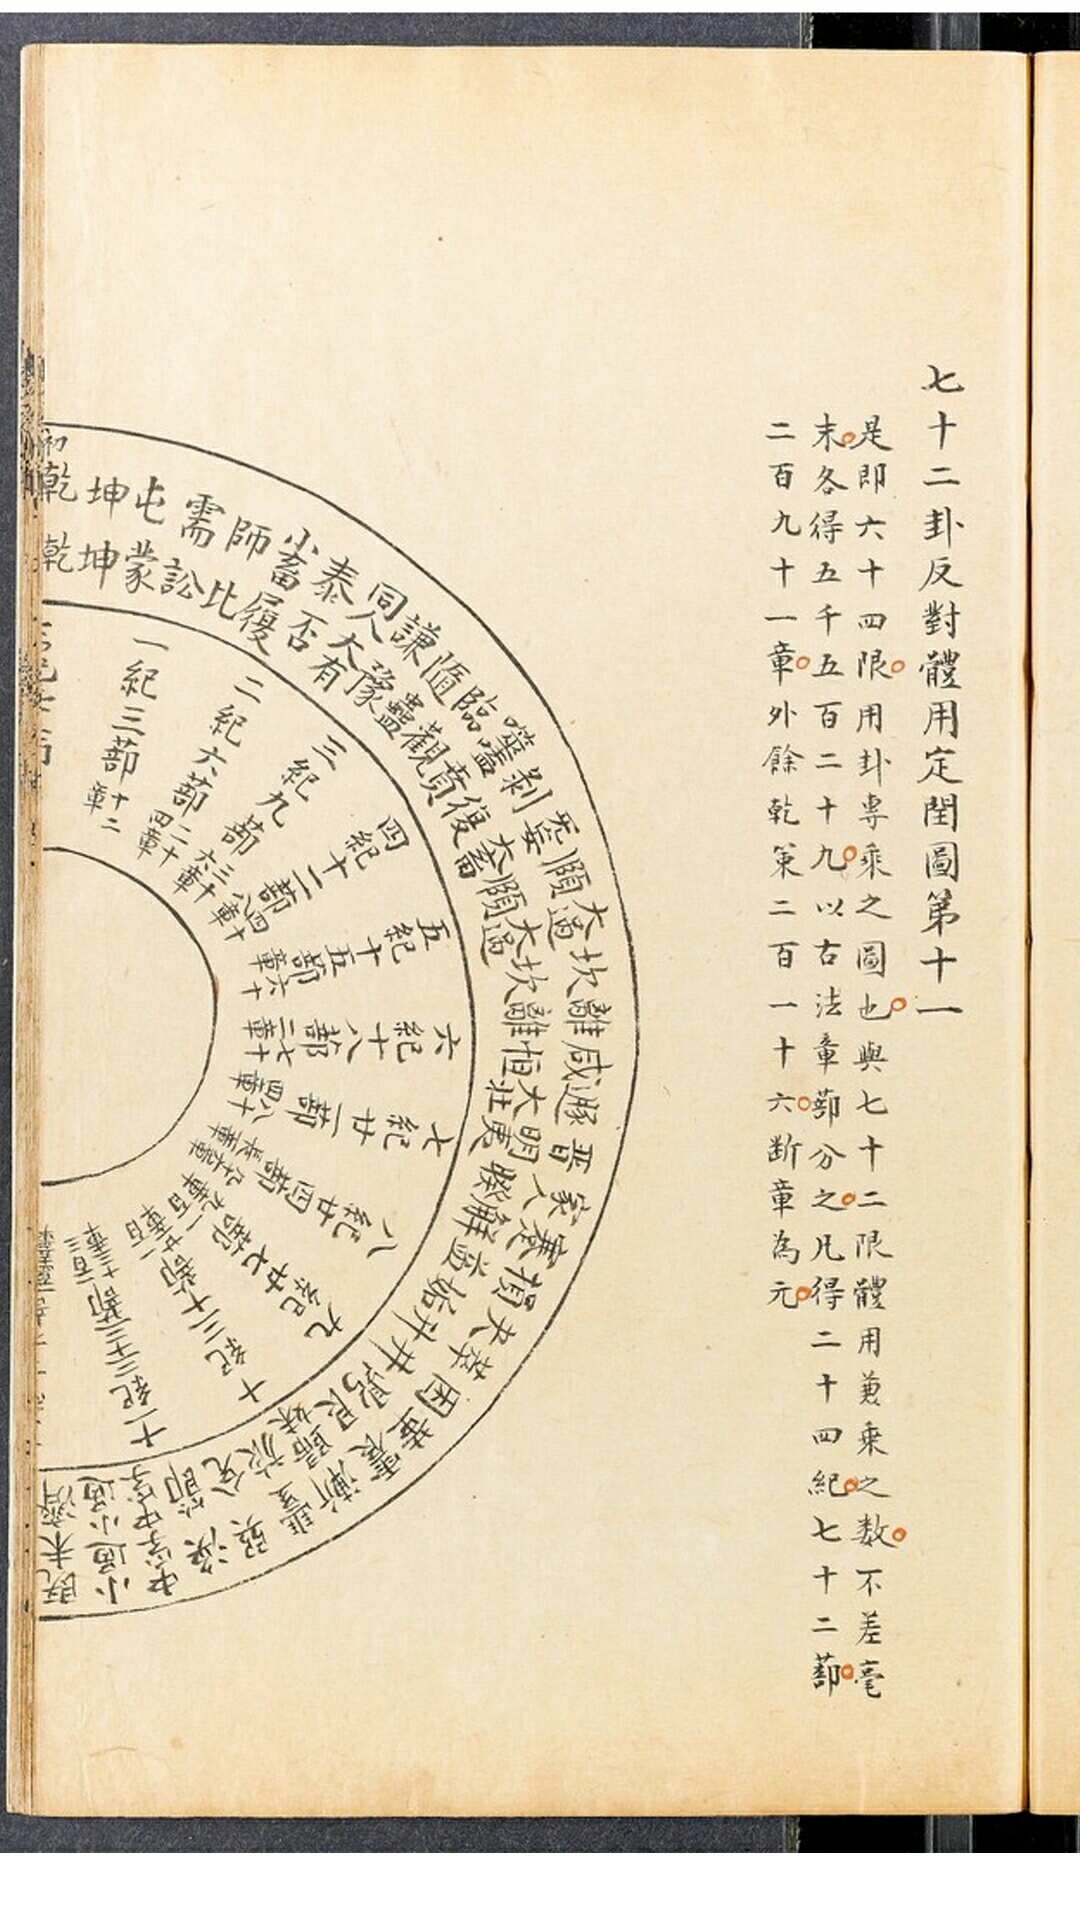 七十二卦反對體用定閏圖第十一
是即六十四限用卦專乘之圖也與七十二限體用兼乘之數不差毫
末各得五千五百二十九以古法章蔀分之凡得二十四紀七十二蔀
二百九十一章外餘乾策二百一十六斷章為元
初
乾 坤 屯 需 師 小畜 泰 同人 謙 隨 臨 噬嗑 剝 无妄 頤 大過 坎 離 咸 遯 晉 家人 蹇 損 夬 萃 困 革 震 漸 豐 巽 渙 中孚 小過 既
乾 坤 蒙 訟 比 履 否 大有 豫 蠱 觀 賁 復 大畜 頤 大過 坎 離 恒 大壯 明夷 睽 解 益 姤 升 井 鼎 艮 歸妹 旅 兌 節 中孚 小過 未濟
一紀三蔀十二章
二紀六蔀二十四章
三紀九蔀三十六章
四紀十二蔀四十八章
五紀十五蔀六十章
六紀十八蔀七十二章
七紀廿一蔀八十四章
八紀廿四蔀
九紀廿七蔀一百九章
十紀三十蔀
十一紀三十三蔀